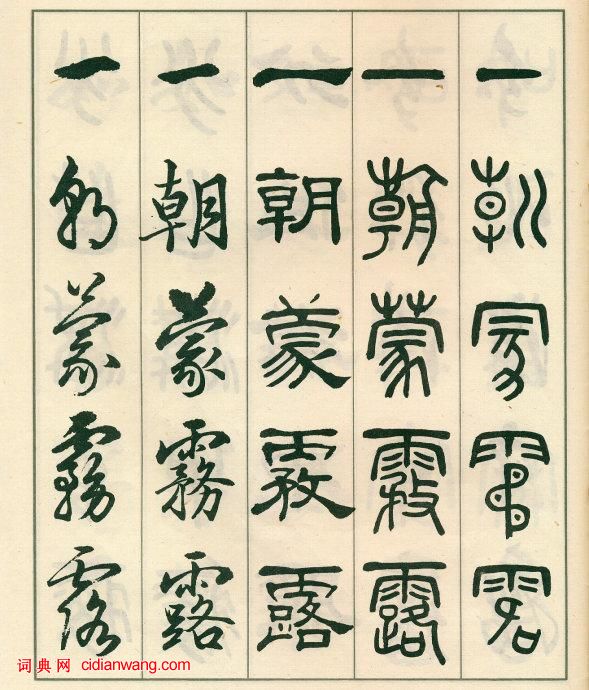 一朝蒙霧露
一朝蒙霚露
一朝蒙霚露
一朝蒙霧露
一朝蒙霧露
词典网 cidianwang.com